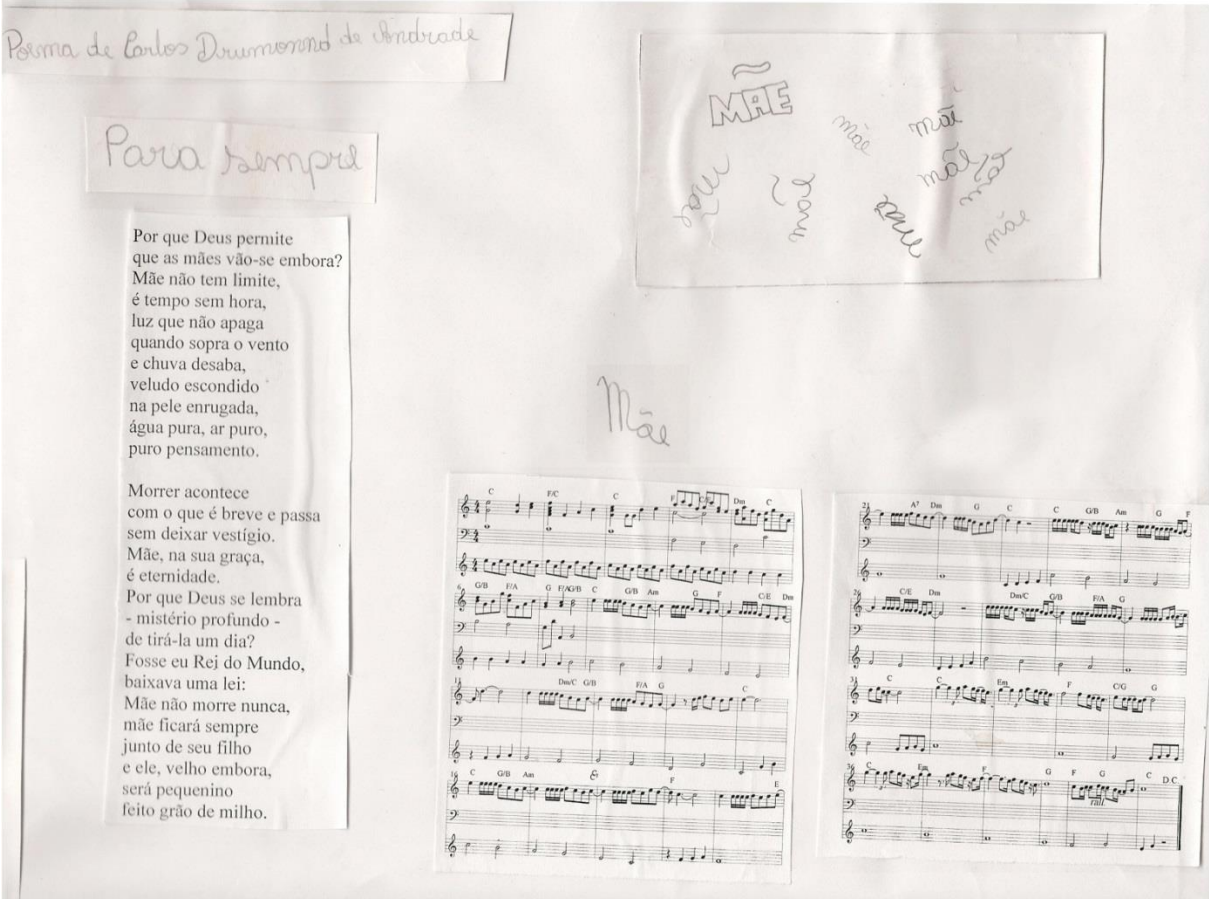 Poema de Carlos Drumonnd de Andrade
Para sempre
Por que Deus permite
que as mães vão-se embora?
Mãe não tem limite,
é tempo sem hora,
luz que não apaga
quando sopra o vento
e chuva desaba,
veludo escondido
na pele enrugada,
água pura, ar puro,
puro pensamento.
Morrer acontece
com o que é breve e passa
sem deixar vestígio.
Mãe, na sua graça,
é eternidade.
Por que Deus se lembra
- mistério profundo -
de tirá-la um dia?
Fosse eu Rei do Mundo,
baixava uma lei:
Mãe não morre nunca,
mãe ficará sempre
junto de seu filho
e ele, velho embora,
será pequenino
feito grão de milho.
MÃE
mãe
mãe
mãe
mãe
mãe
mãe
mãe
mãe
Mãe
C F/C C F Dm C
6 G/B F/A G F/A G/B C G/B Am G F C/E Dm
11 Dm/C G/B F/A G C
16 C G/B Am F E
21 A7 Dm G C C G/B Am G F
26 C/E Dm Dm/C G/B F/A G
31 C C Em F C/G G
36 C Em F G F G C D.C.
rall